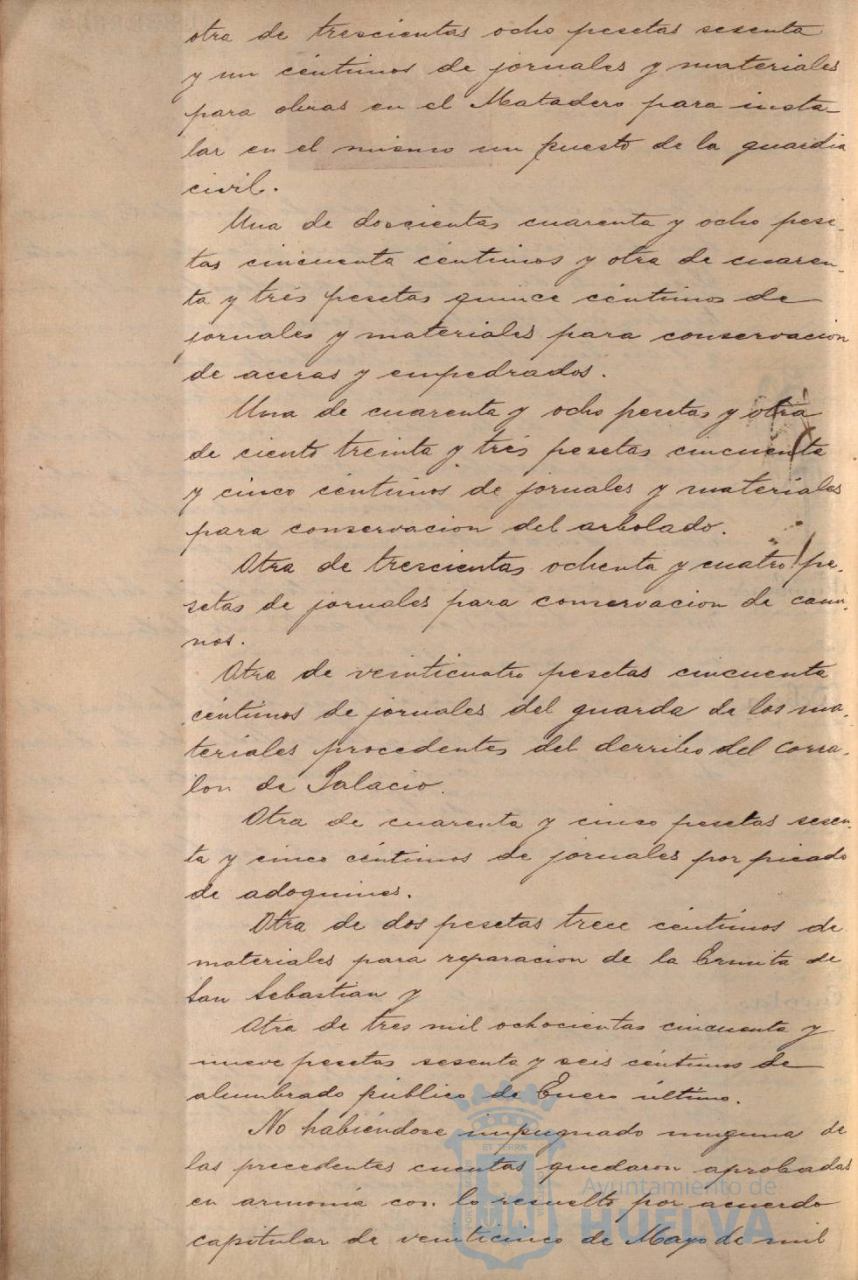 otra de trescientas ocho pesetas sesenta
y un céntimos de jornales y materiales
para obras en el Matadero para insta-
lar en el mismo un puesto de la guardia
civil.
Una de doscientas cuarenta y ocho pese-
tas cincuenta céntimos y otra de cuaren-
ta y tres pesetas quince céntimos de
jornales y materiales para conservacion
de aceras y empedrados.
Una de cuarenta y ocho pesetas y otra
de ciento treinta y tres pesetas cincuenta
y cinco céntimos de jornales y materiales
para conservacion del arbolado.
Otra de trescientas ochenta y cuatro pe-
setas de jornales para conservacion de cami-
nos.
Otra de veinticuatro pesetas cincuenta
céntimos de jornales del guarda de los ma-
teriales procedentes del derribo del Corra-
lon de Palacio.
Otra de cuarenta y cinco pesetas sesen-
ta y cinco céntimos de jornales por picado
de adoquines.
Otra de dos pesetas trece céntimos de
materiales para reparacion de la Ermita de
San Sebastian y
Otra de tres mil ochocientas cincuenta y
nueve pesetas sesenta y seis céntimos de
alumbrado público de Enero último.
No habiéndose impugnado ninguna de
las precedentes cuentas quedaron aprobadas
en armonia con lo resuelto por acuerdo
capitular de veinticinco de Mayo de mil
Ayuntamiento de
HUELVA